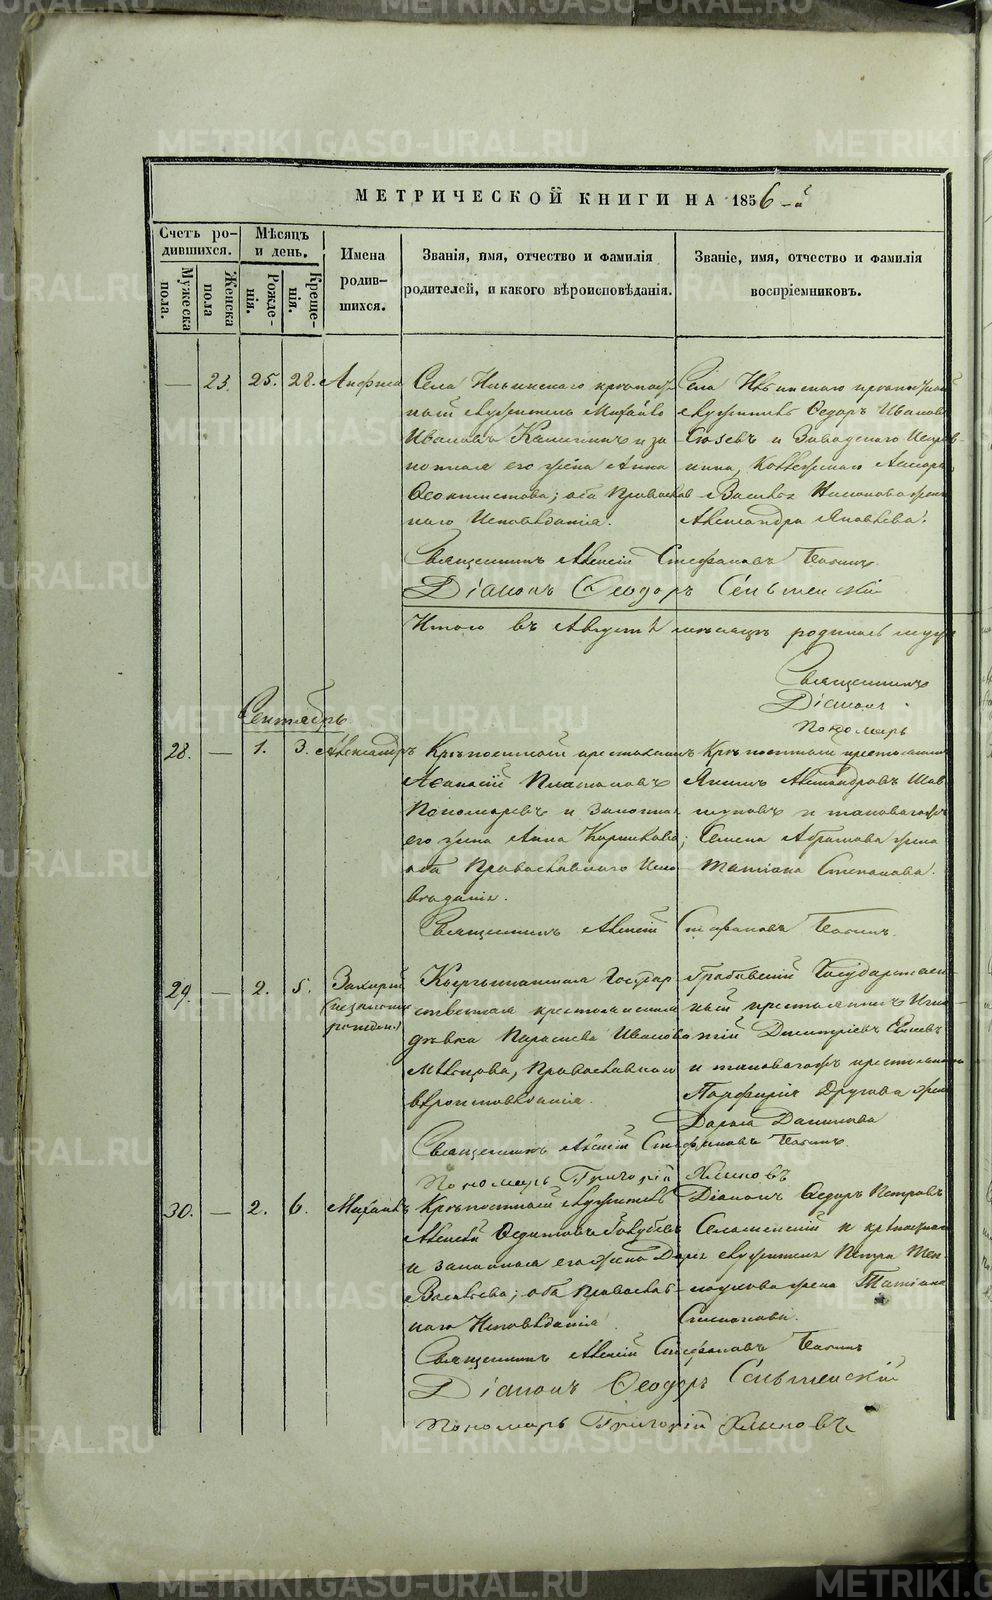 МЕТРИЧЕСКОЙ КНИГИ НА 1856-й
Счетъ ро-
дившихся.
Мужеска
пола.
Женска
пола
Мѣсяцъ
и день.
Рожде-
нія.
Креще-
нія.
Имена
родив-
шихся.
Званія, имя, отчество и фамилія
родителей, и какого вѣроисповѣданія.
Званіе, имя, отчество и фамилія
воспріемниковъ.
— 23. 25. 28. Анфиса
Села Ильинскаго крѣпост
ный служитель Михайло
Ивановъ Калининъ и за
конная его жена Анна
Феоктистова; оба Православ
наго Исповѣданія.
Села Ильинскаго крѣпостный
служитель Федоръ Ивановъ
Сюзевъ и Заводскаго Исправ-
ника,
Александра Яковлева.
Священникъ Алексій Стефановъ
Діаконъ Феодоръ
Итого въ Августѣ мѣсяцѣ родилось
Священникъ
Діаконъ
Пономарь
Сентябрь
28. — 1. 3. Александръ
Крѣпостный крестьянинъ
Аѳанасій Платоновъ
Пономаревъ и Законная
его жена Анна
оба Православнаго Испо
вѣданія.
Крѣпостный крестьянинъ
Якимъ Александровъ Шав
куновъ и таковагожъ
Семена Абрамова жена
Татіана Степанова.
Священникъ Алексій Стефановъ
29. — 2. 5. Захарій
(незаконно
рожден)
Государ
ственная крестьянская
дѣвка Парасковья Иванова
Православнаго
вѣроисповѣданія.
Государствен-
ный крестьянинъ Игна
тій Димитріевъ
и таковагожъ крестьянина
Порфирія Другова жена
Дарья Данилова
Священникъ Алексій Стефановъ
Пономарь Григорій Хлыновъ
30. — 2. 6. Михаилъ
Крѣпостный служитель
Алексѣй Федотовъ Голубевъ
и законная его жена Дарья
Васильева; оба Православ-
наго Исповѣданія
Діаконъ Федоръ Петровъ
и крѣпостнаго
служителя Петра Теп
лоухова жена Татіана
Степанова.
Священникъ Алексій Стефановъ
Діаконъ Феодоръ
Пономарь Григорій Хлыновъ
METRIKI.GASO-URAL.RU